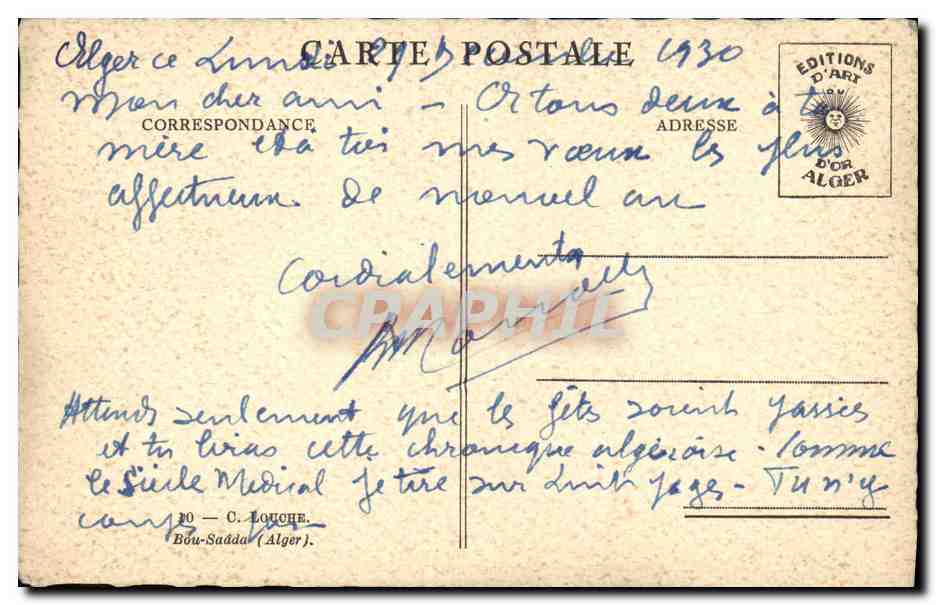 CARTE POSTALE
Alger ce Lundi 29 Décembre 1930
EDITIONS
D'ART
DU
D'OR
ALGER
Mon cher ami - Or tous deux à ta
CORRESPONDANCE
ADRESSE
mère et à toi mes vœux les plus
affectueux de nouvel an
Cordialement
CRAPHIL
Attends seulement que les fêtes soient passées
et tu liras cette chronique algéroise - Comme
le Siècle Medical je tire sur huit pages - Tu n'y
coupes pas
10 — C. LOUCHE.
Bou-Saâda (Alger).